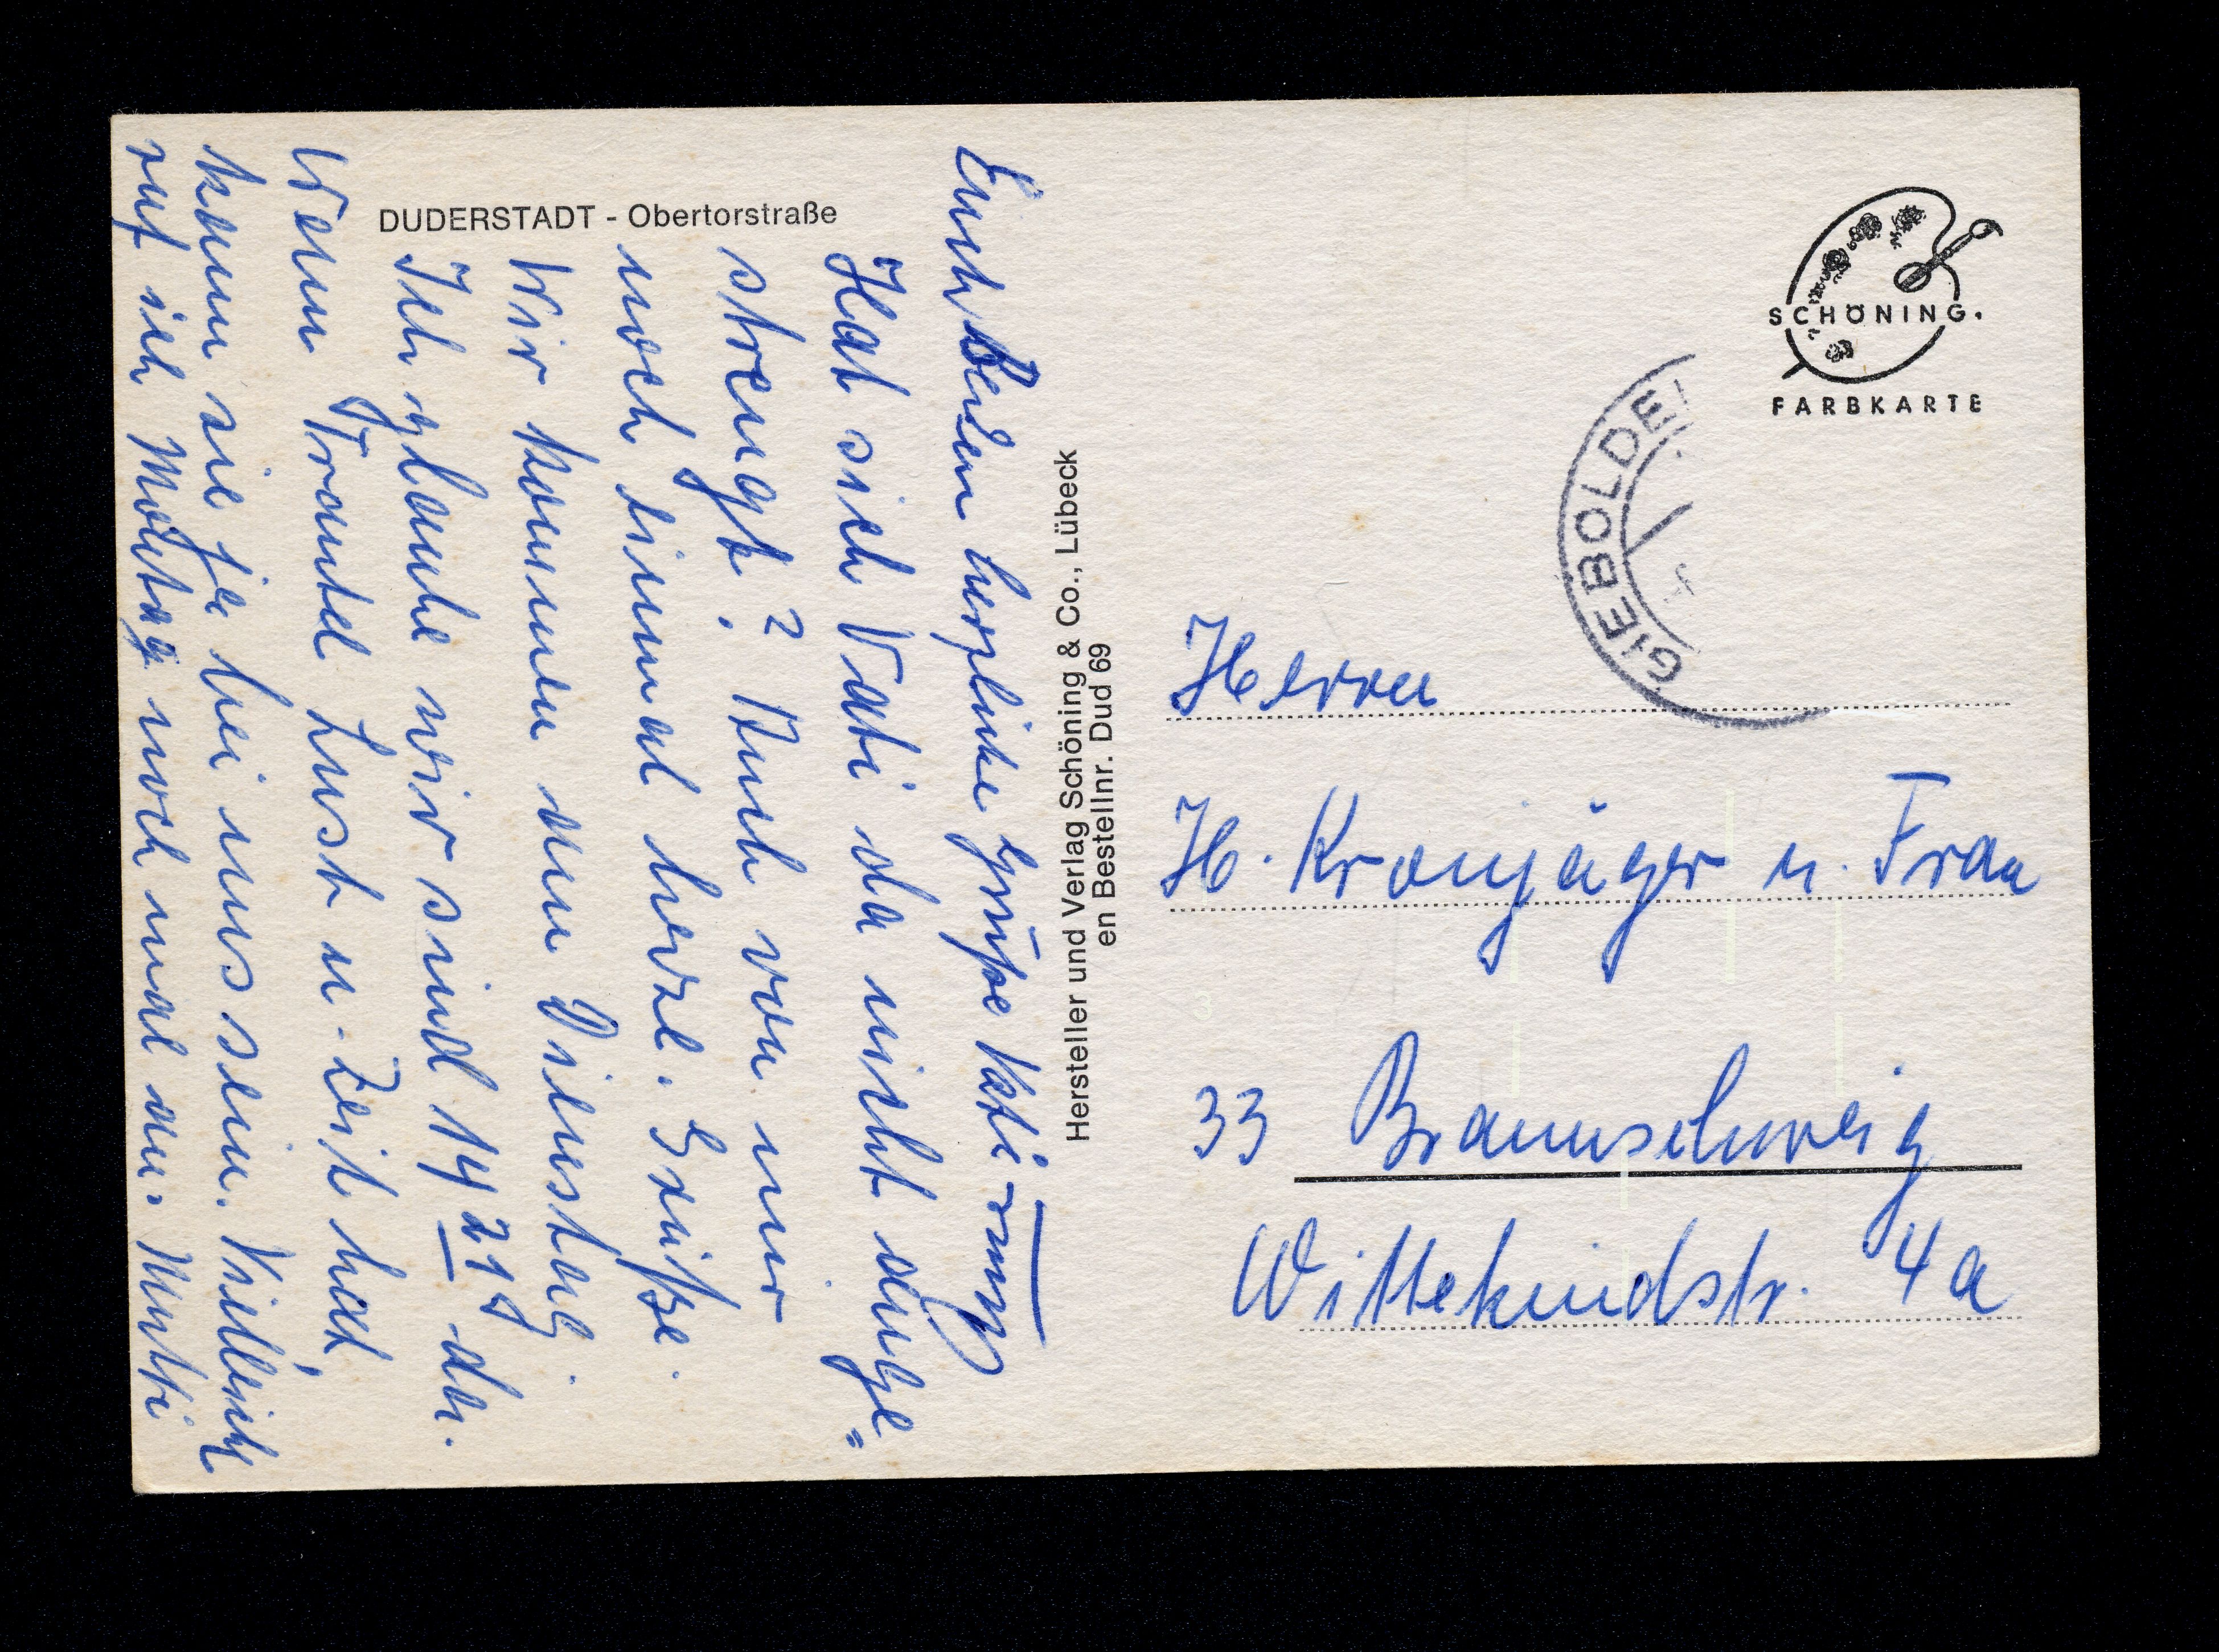 DUDERSTADT - Obertorstraße
Euch Beiden herzliche Grüße Vati
Hat sich Vati da nicht ange=
strengt? Auch von mir
noch einmal herzl. Grüße.
Wir kommen am Dienstag
Ich glaube wir sind 14 21 da.
Wenn Trautel Lust u. Zeit hat,
kann sie ja bei uns sein. Vielleicht
ruf ich Montag noch mal an. Mutti
Hersteller und Verlag Schöning & Co., Lübeck
en Bestellnr. Dud 69
SCHÖNING.
FARBKARTE
GIEBOLDE
Herrn
H. Kronjäger u. Frau
33 Braunschweig
Wittekindstr. 4a